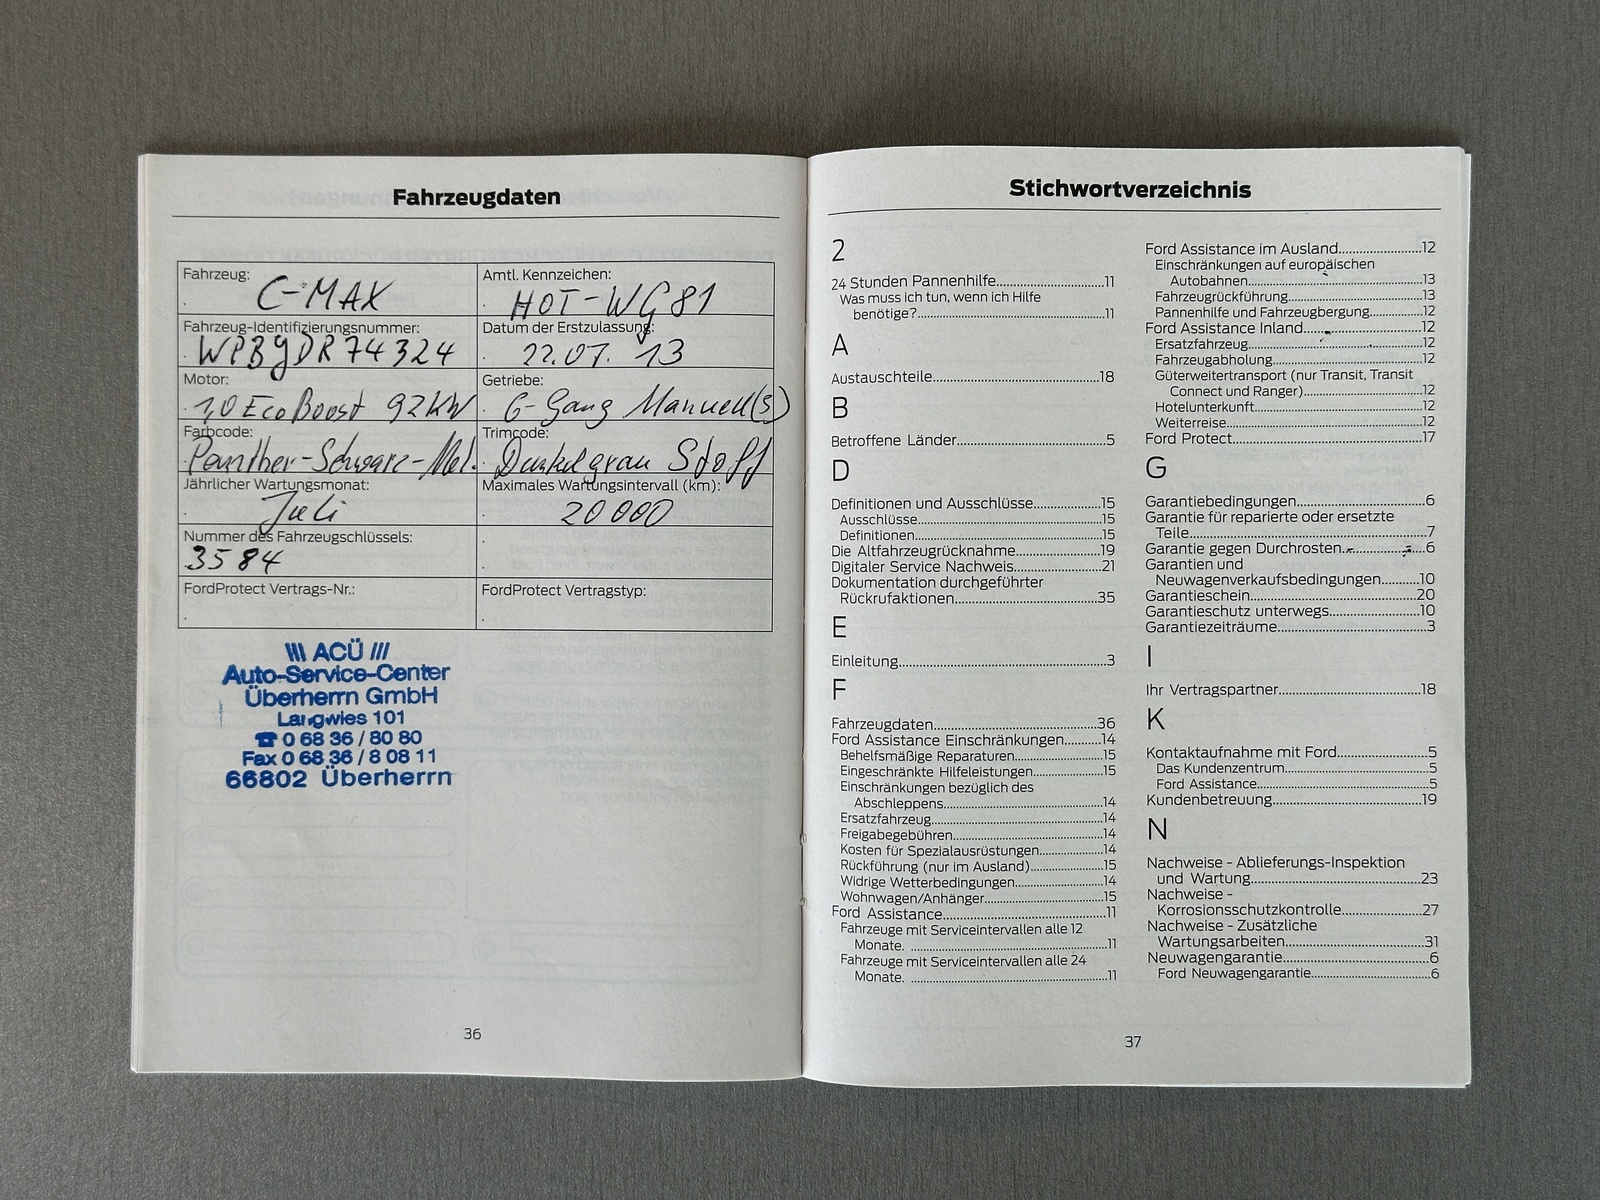 Fahrzeugdaten
Fahrzeug:
C-MAX
Amtl. Kennzeichen:
HOT-WG 81
Fahrzeug-Identifizierungsnummer:
Datum der Erstzulassung:
22.07. 13
Motor:
1,0 EcoBoost 92KW
Getriebe:
6-Gang Manuell(S)
Farbcode:
Panther-Schwarz-Met.
Trimcode:
Dunkelgrau Stoff
Jährlicher Wartungsmonat:
Juli
Maximales Wartungsintervall (km):
20000
Nummer des Fahrzeugschlüssels:
3584
FordProtect Vertrags-Nr.:
FordProtect Vertragstyp:
\\\ ACÜ ///
Auto-Service-Center
Überherrn GmbH
Langwies 101
☎ 0 68 36 / 80 80
Fax 0 68 36 / 8 08 11
66802 Überherrn
36
Stichwortverzeichnis
2
24 Stunden Pannenhilfe...11
Was muss ich tun, wenn ich Hilfe
benötige?...11
A
Austauschteile...18
B
Betroffene Länder...5
D
Definitionen und Ausschlüsse...15
Ausschlüsse...15
Definitionen...15
Die Altfahrzeugrücknahme...19
Digitaler Service Nachweis...21
Dokumentation durchgeführter
Rückrufaktionen...35
E
Einleitung...3
F
Fahrzeugdaten...36
Ford Assistance Einschränkungen...14
Behelfsmäßige Reparaturen...15
Eingeschränkte Hilfeleistungen...15
Einschränkungen bezüglich des
Abschleppens...14
Ersatzfahrzeug...14
Freigabegebühren...14
Kosten für Spezialausrüstungen...14
Rückführung (nur im Ausland)...15
Widrige Wetterbedingungen...14
Wohnwagen/Anhänger...15
Ford Assistance...11
Fahrzeuge mit Serviceintervallen alle 12
Monate. ...11
Fahrzeuge mit Serviceintervallen alle 24
Monate. ...11
Ford Assistance im Ausland...12
Einschränkungen auf europäischen
Autobahnen...13
Fahrzeugrückführung...13
Pannenhilfe und Fahrzeugbergung...12
Ford Assistance Inland...12
Ersatzfahrzeug...12
Fahrzeugabholung...12
Güterweitertransport (nur Transit, Transit
Connect und Ranger)...12
Hotelunterkunft...12
Weiterreise...12
Ford Protect...17
G
Garantiebedingungen...6
Garantie für reparierte oder ersetzte
Teile...7
Garantie gegen Durchrosten...6
Garantien und
Neuwagenverkaufsbedingungen...10
Garantieschein...20
Garantieschutz unterwegs...10
Garantiezeiträume...3
I
Ihr Vertragspartner...18
K
Kontaktaufnahme mit Ford...5
Das Kundenzentrum...5
Ford Assistance...5
Kundenbetreuung...19
N
Nachweise - Ablieferungs-Inspektion
und Wartung...23
Nachweise -
Korrosionsschutzkontrolle...27
Nachweise - Zusätzliche
Wartungsarbeiten...31
Neuwagengarantie...6
Ford Neuwagengarantie...6
37